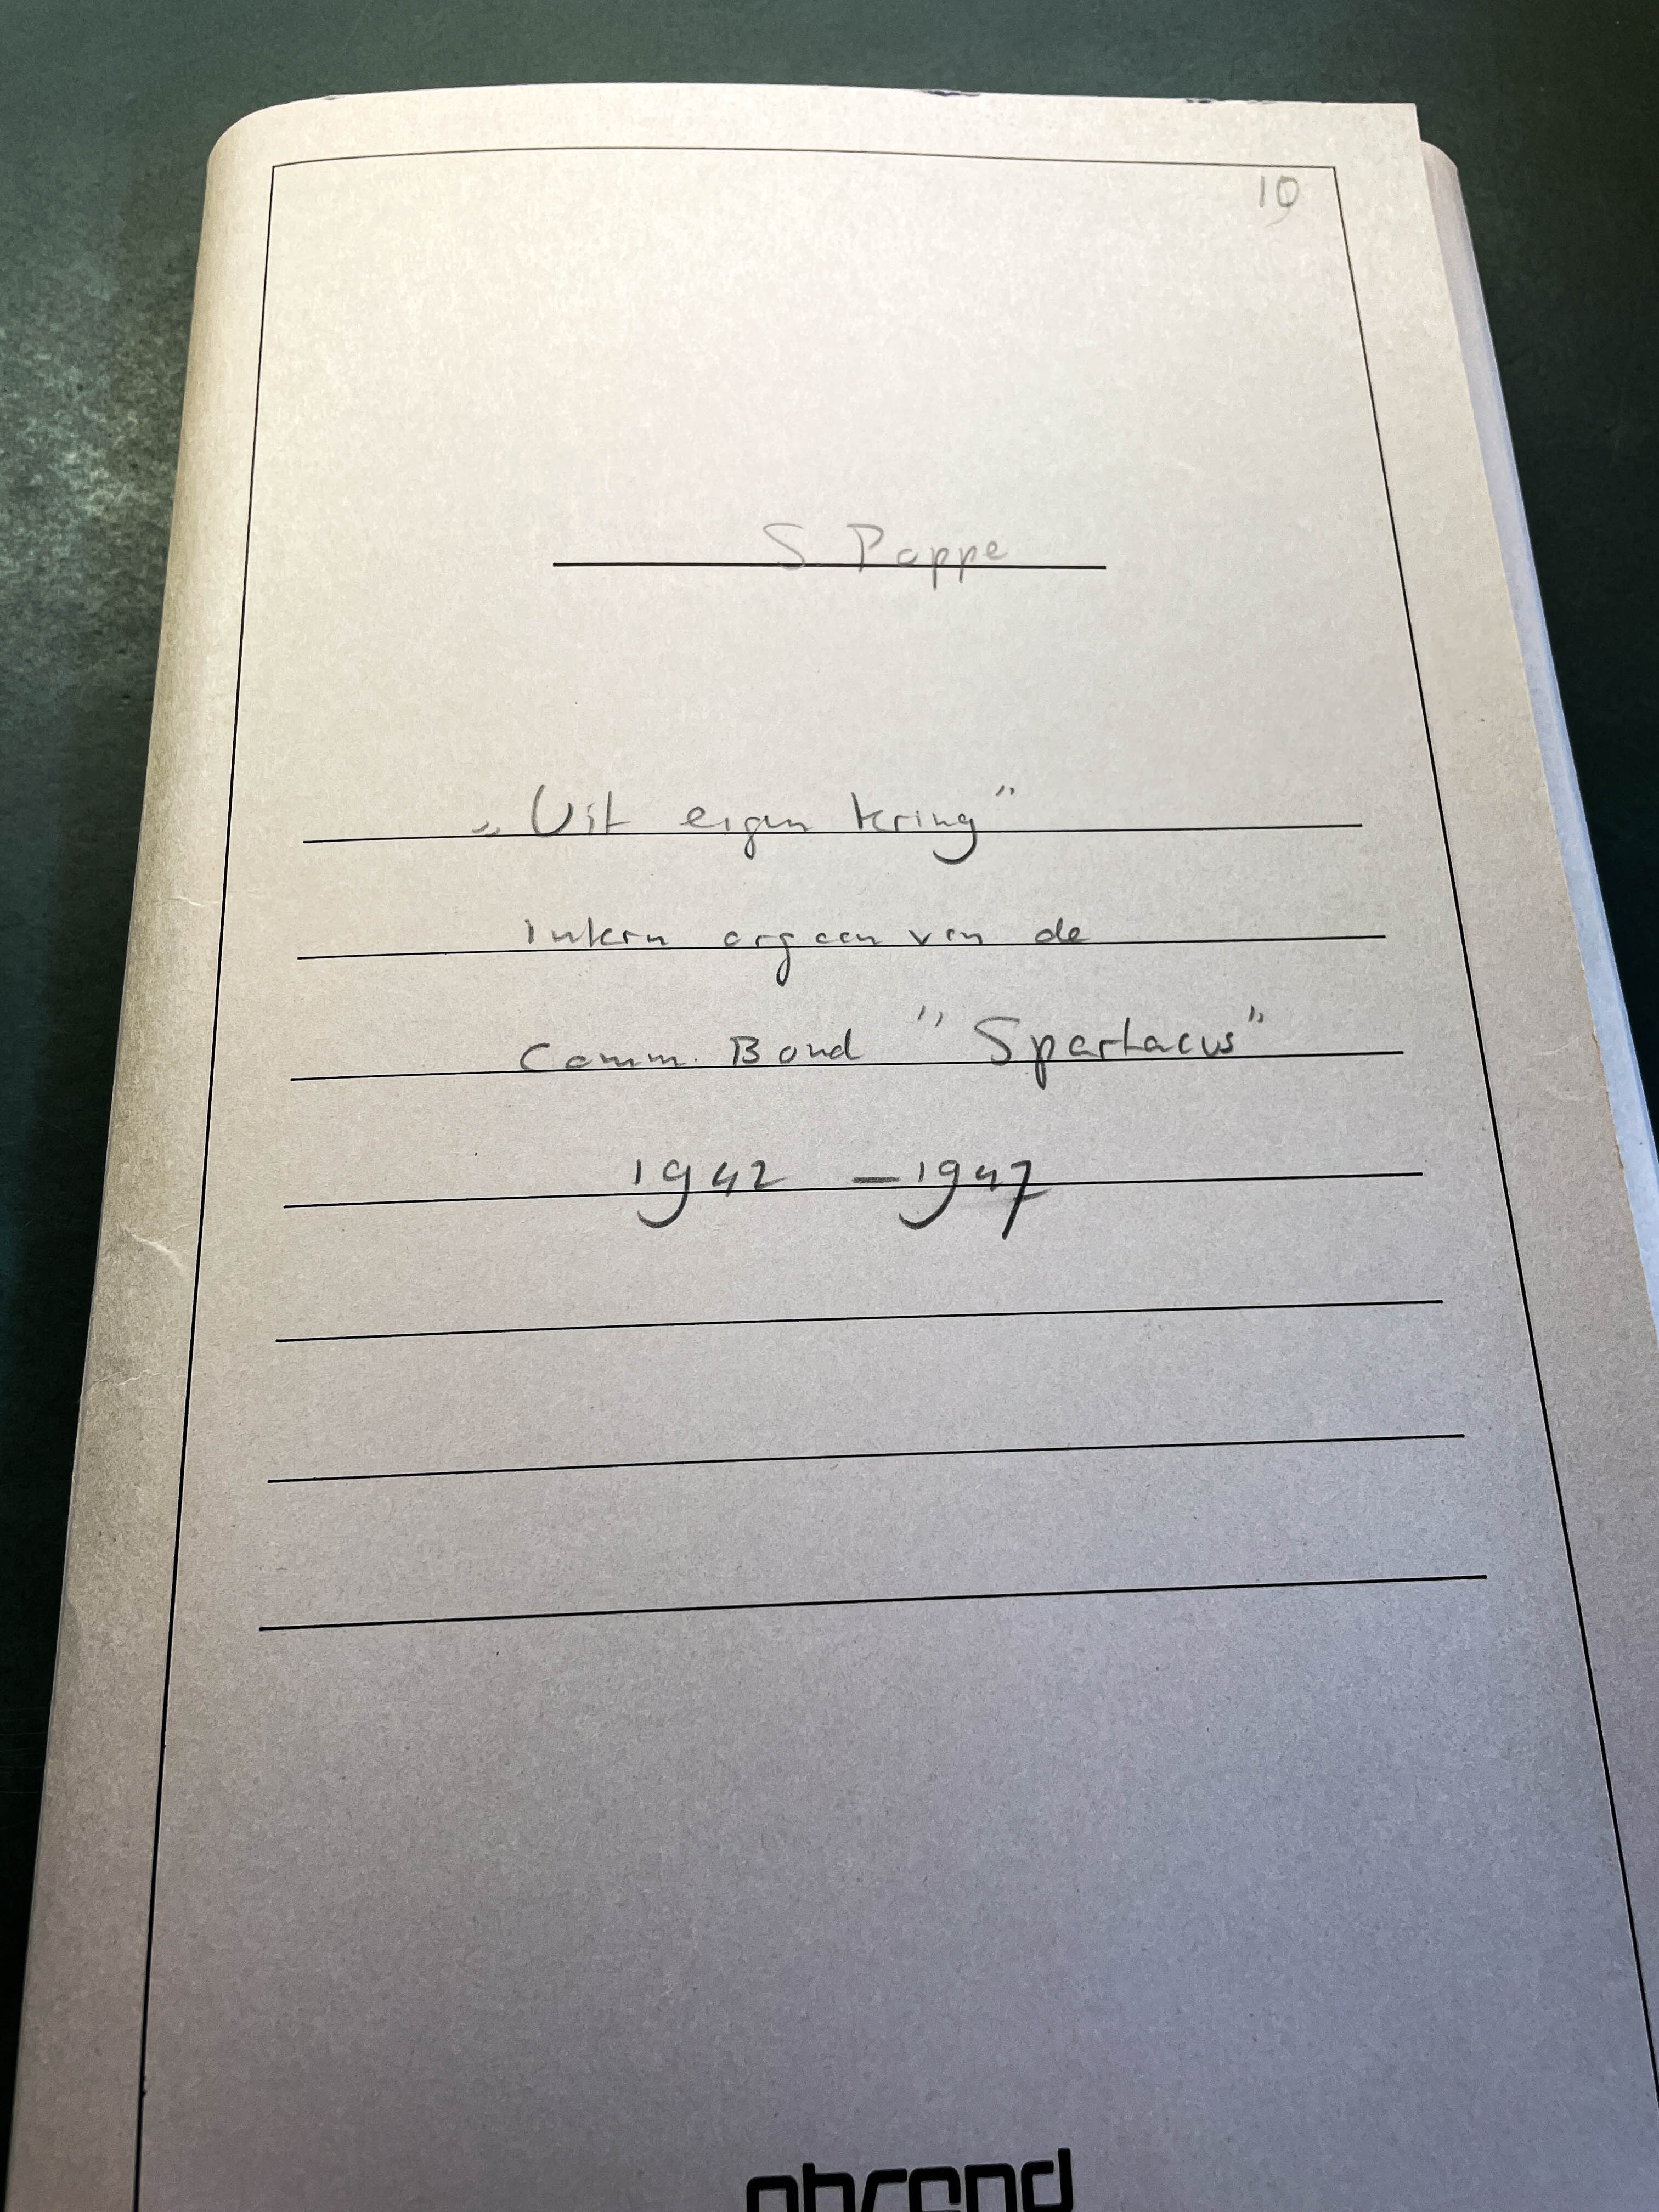 10
S. Poppe
„Uit eigen kring"
Intern orgaan van de
Comm. Bond "Spartacus"
1942 – 1947
ahrend